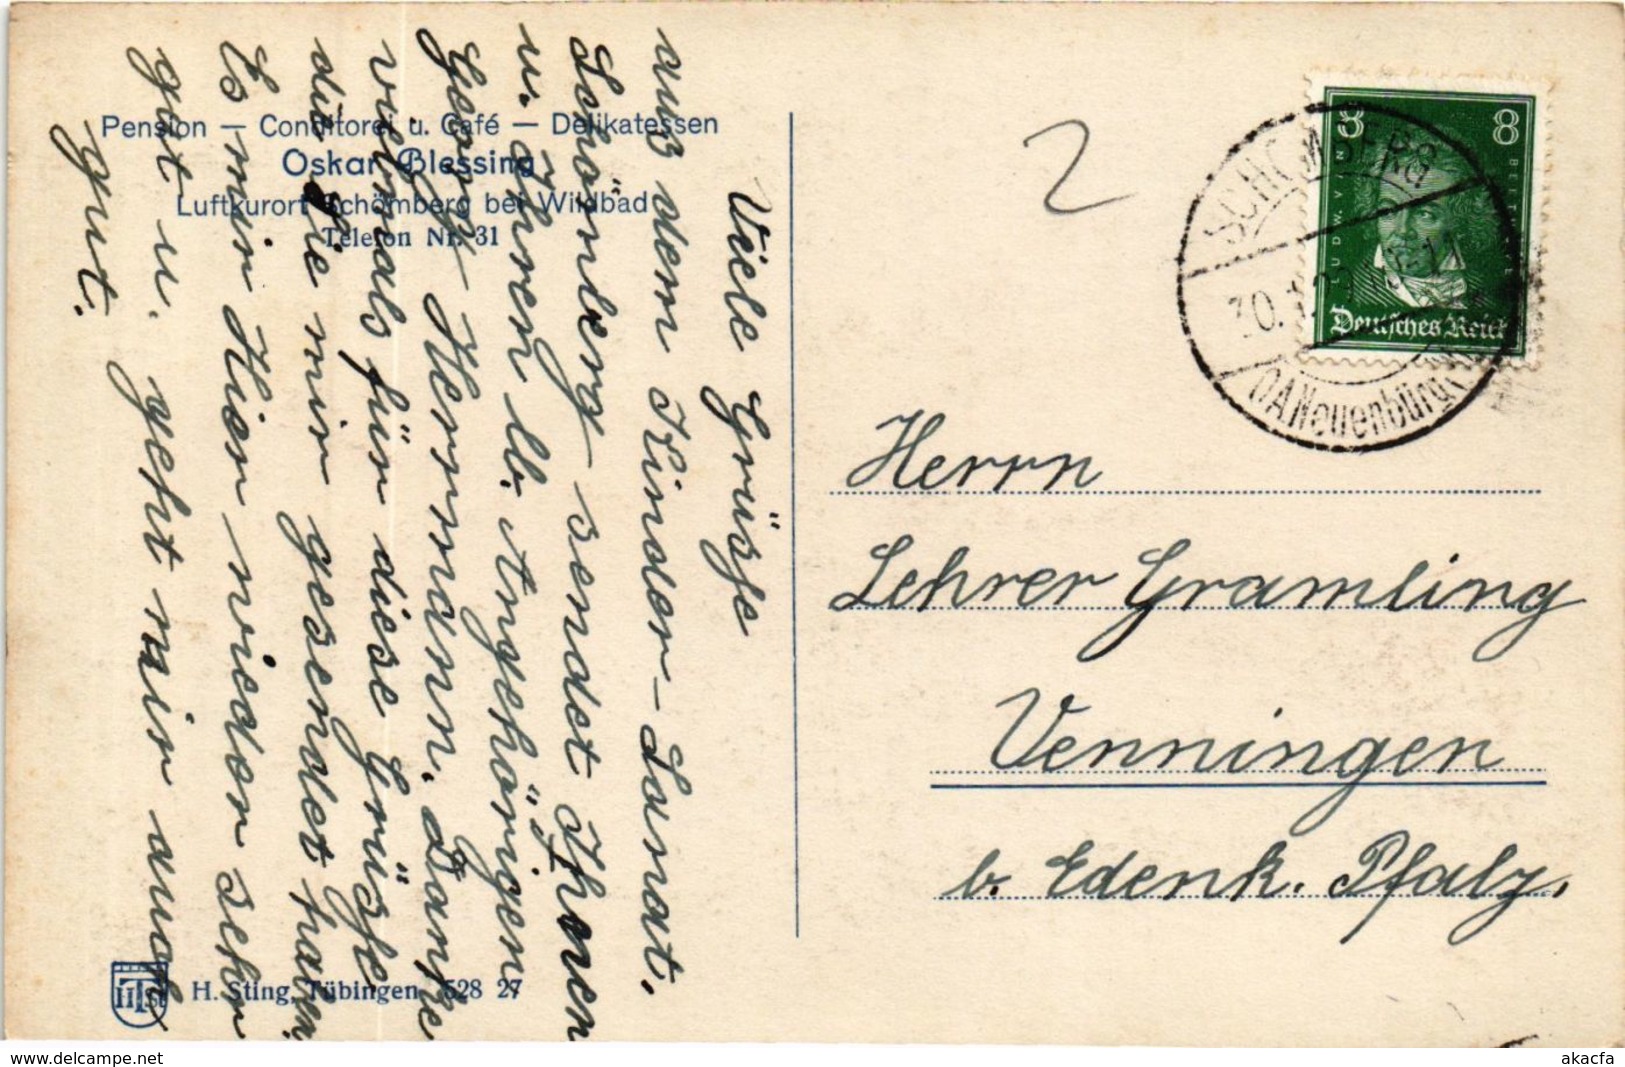 Pension — Conditorei u. Café — Delikatessen
Oskar Blessing
Luftkurort Schömberg bei Wildbad
Telefon Nr. 31
Viele Grüsse
aus dem Kinder-Sanat.
Schömberg sendet Ihnen
u. Ihren lb. Angehörigen
Georg Herrmann. Danke
vielmals für diese Grüsse,
die Sie mir gesendet haben.
Es mir Hier wieder sehr
gut u. geht mir auch
gut.
H. Sting, Tübingen 528 27
2
8 8
LUDW. V. BEETHOVEN
Deutsches Reich
SCHÖMBERG
OA Neuenbürg
Herrn
Lehrer Gramling
Venningen
b. Edenk. Pfalz.
delcampe.net
akacfa